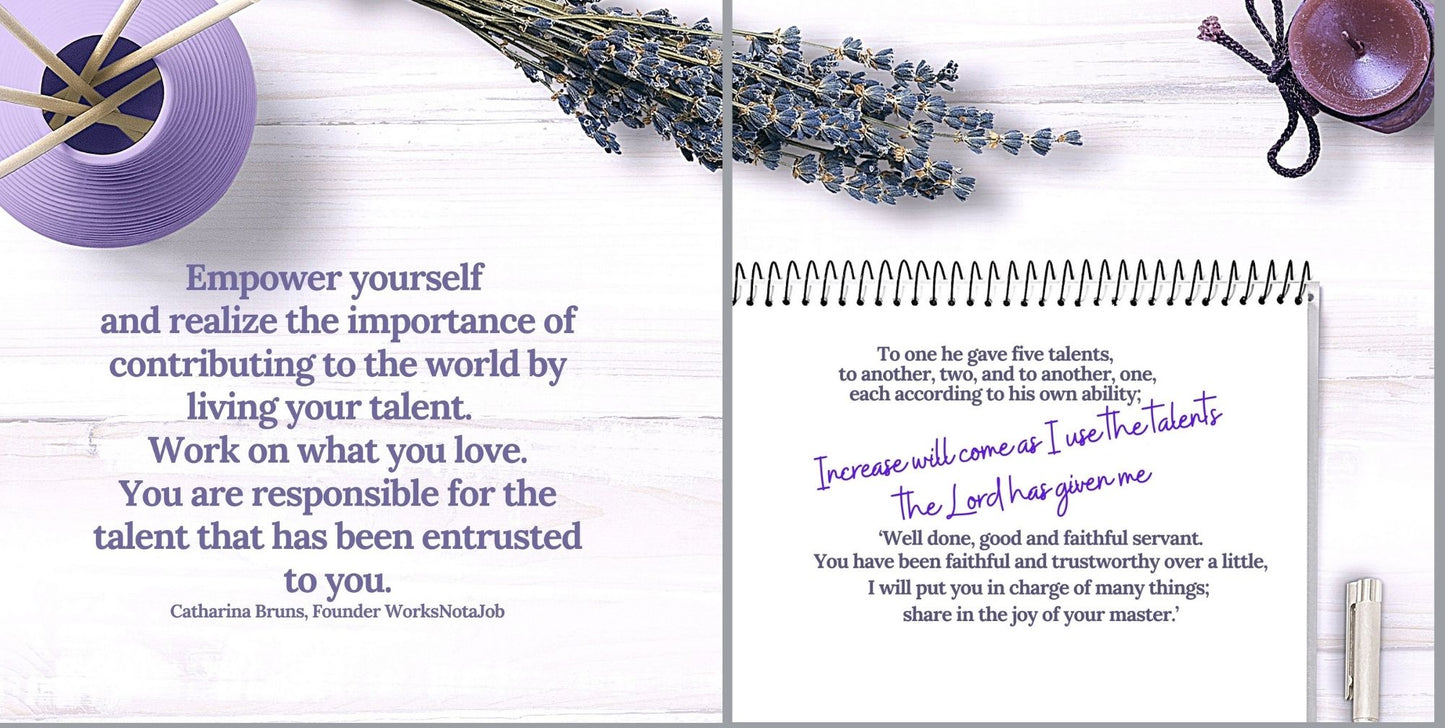 Empower yourself
and realize the importance of
contributing to the world by
living your talent.
Work on what you love.
You are responsible for the
talent that has been entrusted
to you.
Catharina Bruns, Founder WorksNotaJob
To one he gave five talents,
to another, two, and to another, one,
each according to his own ability;
Increase will come as I use the talents
the Lord has given me
‘Well done, good and faithful servant.
You have been faithful and trustworthy over a little,
I will put you in charge of many things;
share in the joy of your master.’